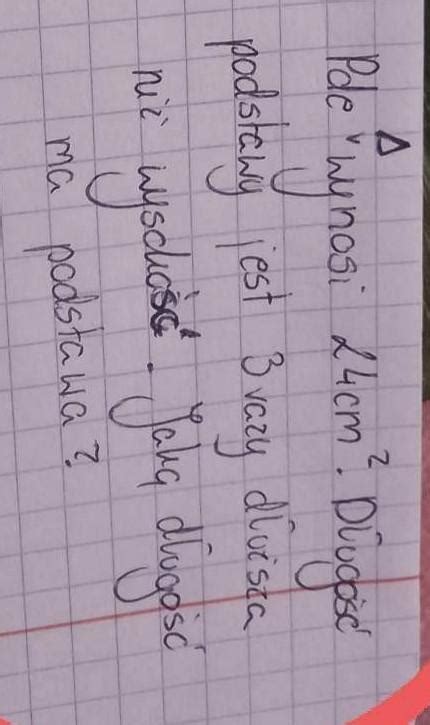 Pole Δ wynosi 24cm². Długość
podstawy jest 3 razy dłuższa
niż wysokość. Jaką długość
ma podstawa?